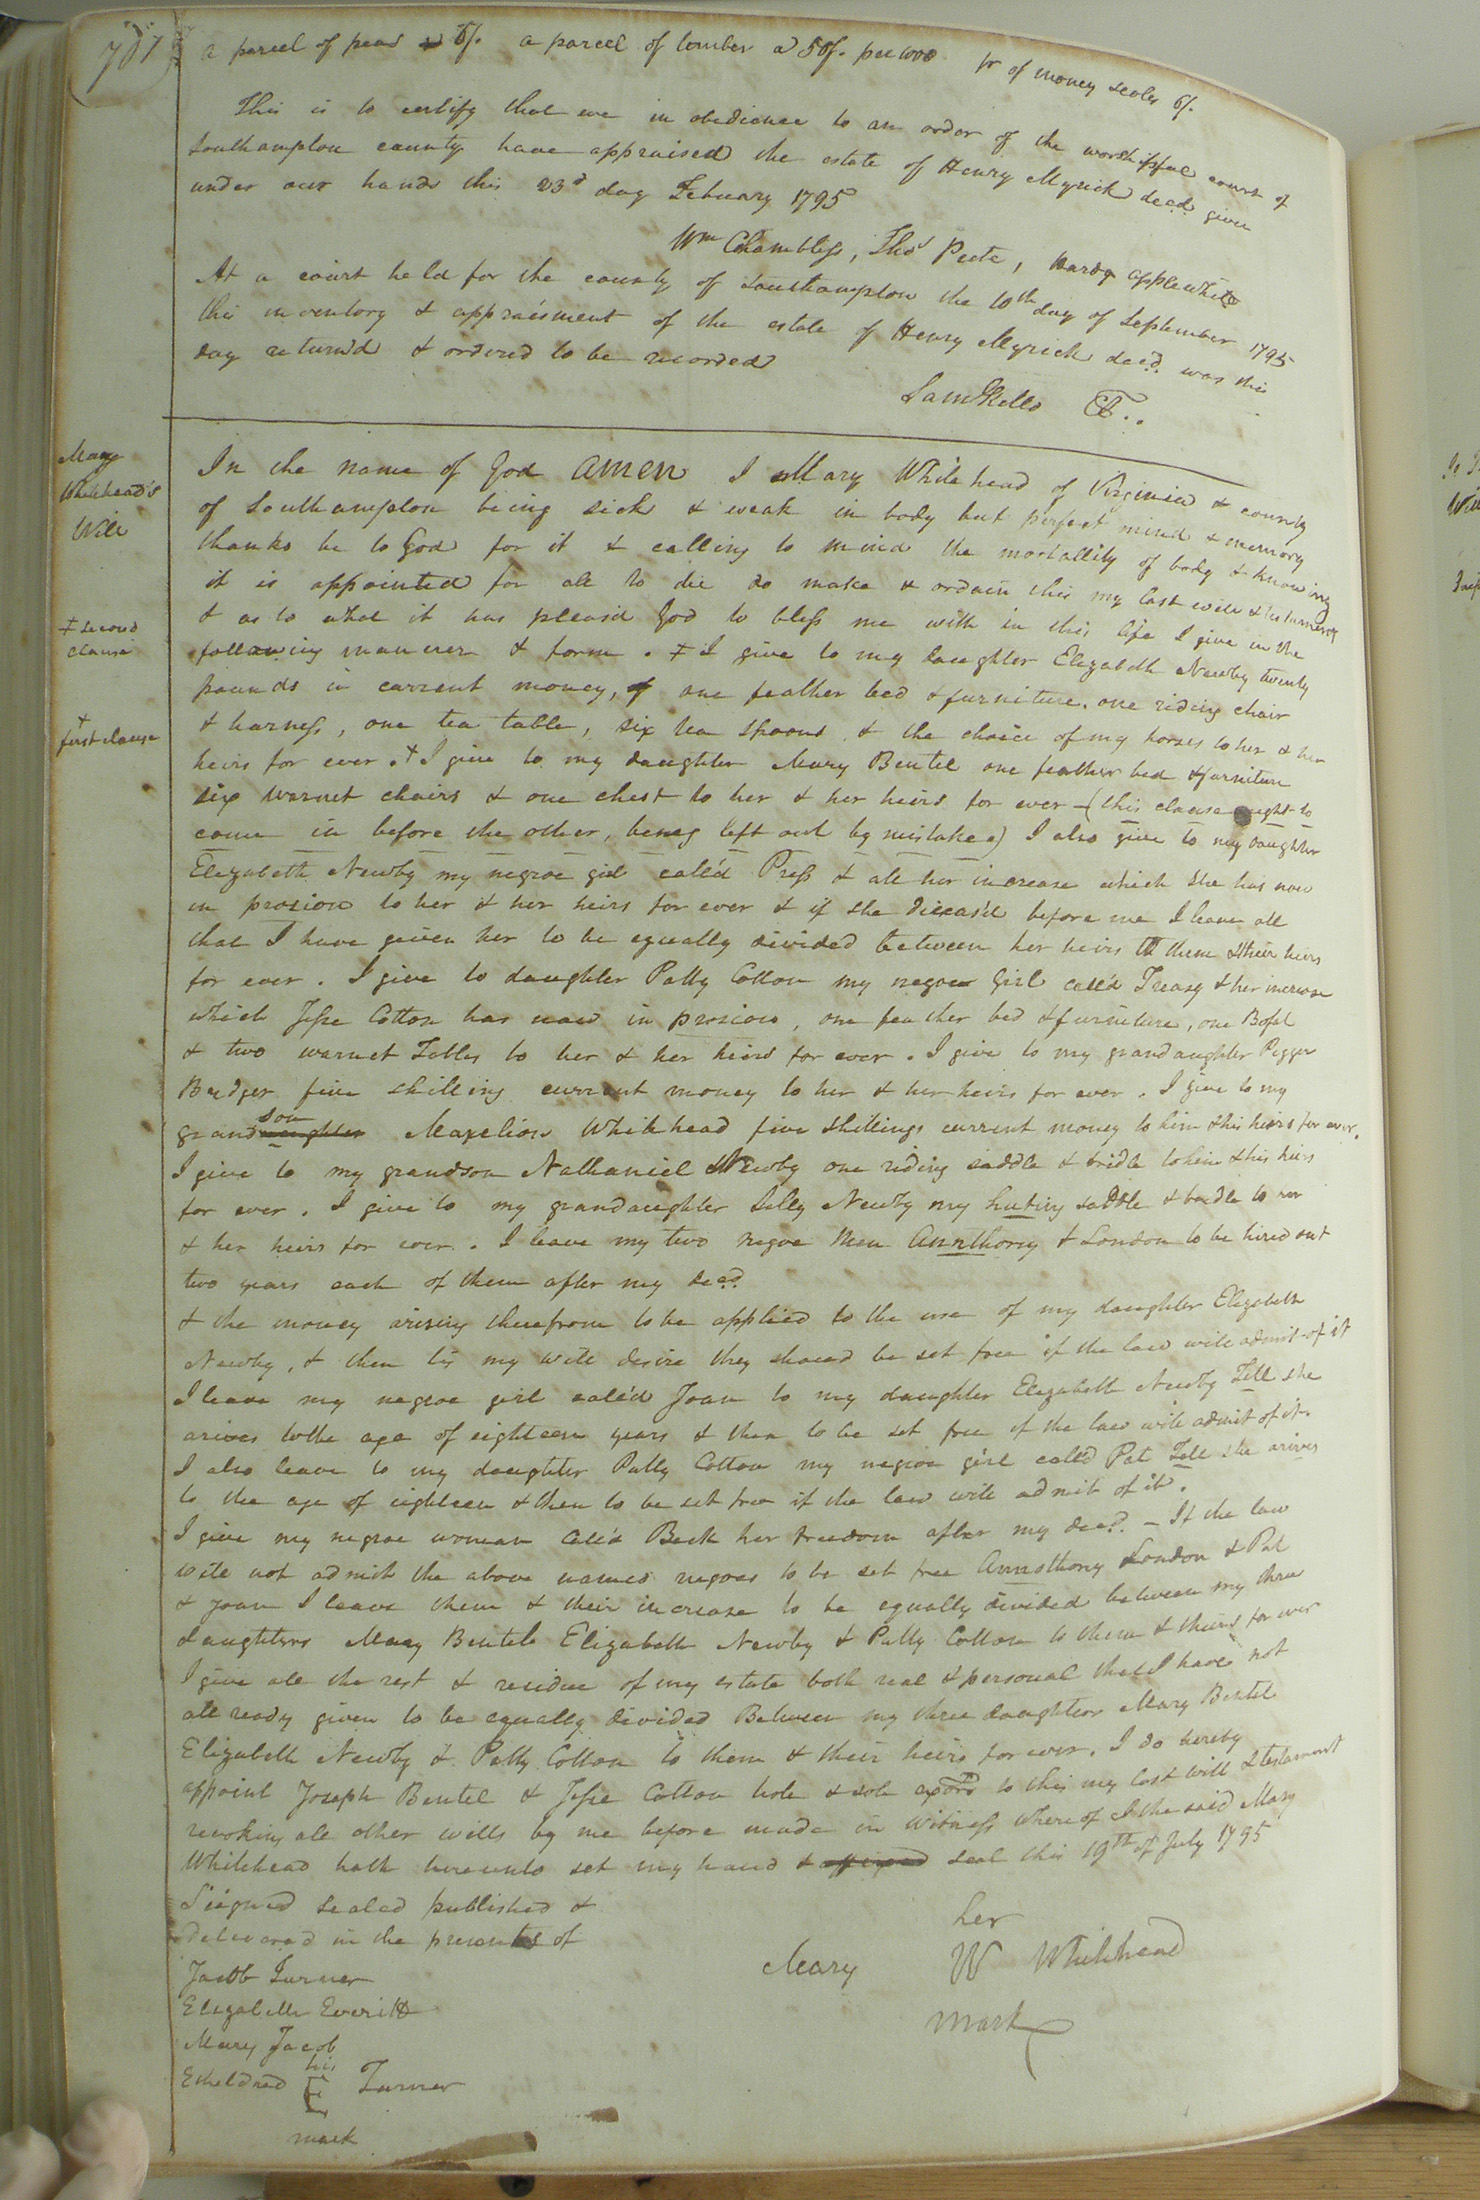 707
a parcel of peas 5/. a parcel of lumber a 50/. per 1000 pr of money scales 6/.
This is to certify that we in obedience to an order of the worshipful court of
Southampton county have appraised the estate of Henry Myrick decd. given
under our hands this 23d day February 1795
Wm Chambliss, Thos Peete, Hardy Applewhite
At a court held for the county of Southampton the 10th day of September 1795
this inventory & appraisment of the estate of Henry Myrick decd. was this
day returned & ordered to be recorded
Sam Kello Ct.
Mary
Whitehead's
Will
In the name of God Amen I Mary Whitehead of Virginia & county
of Southampton being sick & weak in body but perfect mind & memory
thanks be to God for it & calling to mind the mortallity of body & knowing
it is appointed for all to die do make & ordain this my last will & testament
& as to what it has pleas'd God to bless me with in this life I give in the
‡ second
clause
following manner & form . ‡ I give to my daughter Elizabeth Newby twenty
pounds in current money, one feather bed & furniture, one riding chair
& harness, one tea table, six tea spoons & the choice of my horses to her & her
† first clause
heirs for ever . † I give to my daughter Mary Bentel one feather bed & furniture
six warnet chairs & one chest to her & her heirs for ever – (this clause ought to
come in before the other, being left out by mistake.) I also give to my daughter
Elizabeth Newby my negroe girl call'd Press & all her increase which she has now
in prosion to her & her heirs for ever & if she diceas'd before me I leave all
that I have given her to be equally divided between her heirs to them & their heirs
for ever . I give to daughter Patty Cotton my negroe Girl call'd Treasy & her increase
which Jesse Cotton has now in prosion, one feather bed & furniture, one Bofat
& two warnet Tables to her & her heirs for ever . I give to my grandaughter
five shilling current money to her & her heirs for ever . I give to my
grand daughter son Whitehead five shillings current money to him & his heirs for ever.
I give to my grandson Nathaniel Newby one riding saddle & bridle to him & his heirs
for ever . I give to my grandaughter Silly Newby my hunting saddle & bridle to her
& her heirs for ever . I leave my two negroe Men Annthony & London to be hired out
two years each of them after my decd.
& the money arising therefrom to be applied to the use of my daughter Elizabeth
Newby, & then tis my will desire they should be set free if the law will admit of it
I leave my negroe girl call'd Joan to my daughter Elizabeth Newby Till she
arives to the age of eighteen years & then to be set free if the law will admit of it.
I also leave to my daughter Patty Cotton my negroe girl call'd Pat Till she arives
to the age of eighteen & then to be set free if the law will admit of it.
I give my negroe woman call'd Beck her freedom after my decd. – If the law
will not admit the above named negroes to be set free Annothony London & Pat
& Joan I leave them & their increase to be equally divided between my three
daughters Mary Bentel Elizabeth Newby & Patty Cotton to them & theirs for ever
I give all the rest & residue of my estate both real & personal that I have not
all ready given to be equally divided Between my three daughters Mary Bentel
Elizabeth Newby & Patty Cotton to them & their heirs for ever. I do hereby
appoint Joseph Bentel & Jesse Cotton hole & sole exors to this my last will & testament
revoking all other wills by me before made in witness whereof I the said Mary
Whitehead hath hereunto set my hand & affixed seal this 19th of July 1795
Seigned sealed published &
delivered in the presents of
Jacob Turner
Elizabeth Everitt
Mary Jacob
Etheldred his E Turner
mark
her
Mary W Whitehead
mark